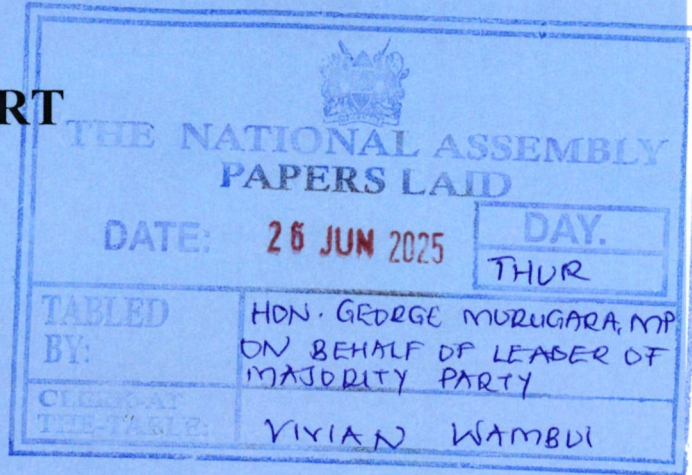 RT
THE NATIONAL ASSEMBLY
PAPERS LAID
DATE: 26 JUN 2025
DAY.
THUR
TABLED BY:
HON. GEORGE MURUGARA, MP
ON BEHALF OF LEADER OF
MAJORITY PARTY
CLERK-AT
THE-TABLE:
VIVIAN WAMBUI